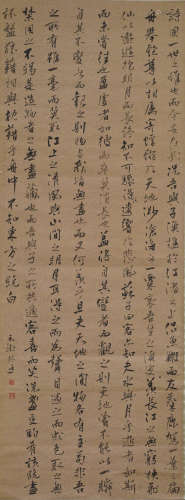 詩固一世之雄也而今安在哉況吾與子漁樵於江渚之上侶魚蝦而友麋鹿駕一葉之扁
舟舉匏尊以相屬寄蜉蝣於天地渺滄海之一粟哀吾生之須臾羨長江之無窮挾飛
仙以遨遊抱明月而長終知不可乎驟得託遺響於悲風蘇子曰客亦知夫水與月乎逝者如斯
而未嘗往也盈虛者如彼而卒莫消長也蓋將自其變者而觀之則天地曾不能以一瞬
自其不變者而觀之則物與我皆無盡也而又何羨乎且夫天地之間物各有主苟非吾之所
有雖一毫而莫取惟江上之清風與山間之明月耳得之而為聲目遇之而成色取之無
禁用之不竭是造物者之無盡藏也而吾與子之所共適客喜而笑洗盞更酌肴核既盡
杯盤狼藉相與枕藉乎舟中不知東方之既白